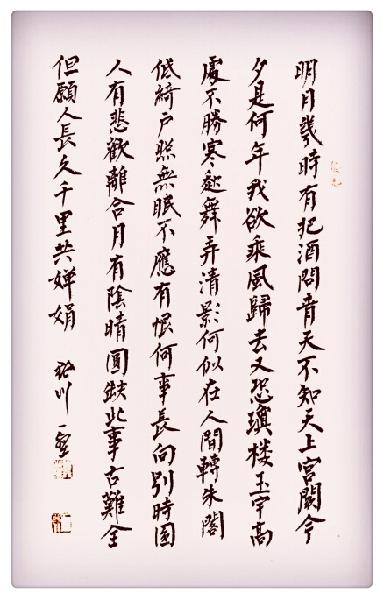 明月幾時有把酒問青天不知天上宮闕今
夕是何年我欲乘風歸去又恐瓊樓玉宇高
處不勝寒起舞弄清影何似在人間轉朱閣
低綺戶照無眠不應有恨何事長向別時圓
人有悲歡離合月有陰晴圓缺此事古難全
但願人長久千里共嬋娟